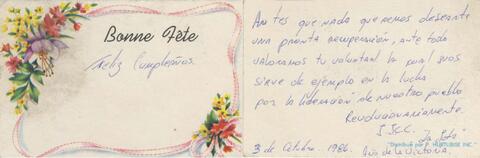 Bonne Fête
Feliz Cumpleaños
Antes que nada queremos desearte
una pronta recuperación, ante todo
valoramos tu voluntad la cual nos
sirve de ejemplo en la lucha
por la liberación de nuestro pueblo
Revolucionariamente
3 de Octubre. 1986. Año de la Victoria.
"Distribué par P. HURTUBISE INC."